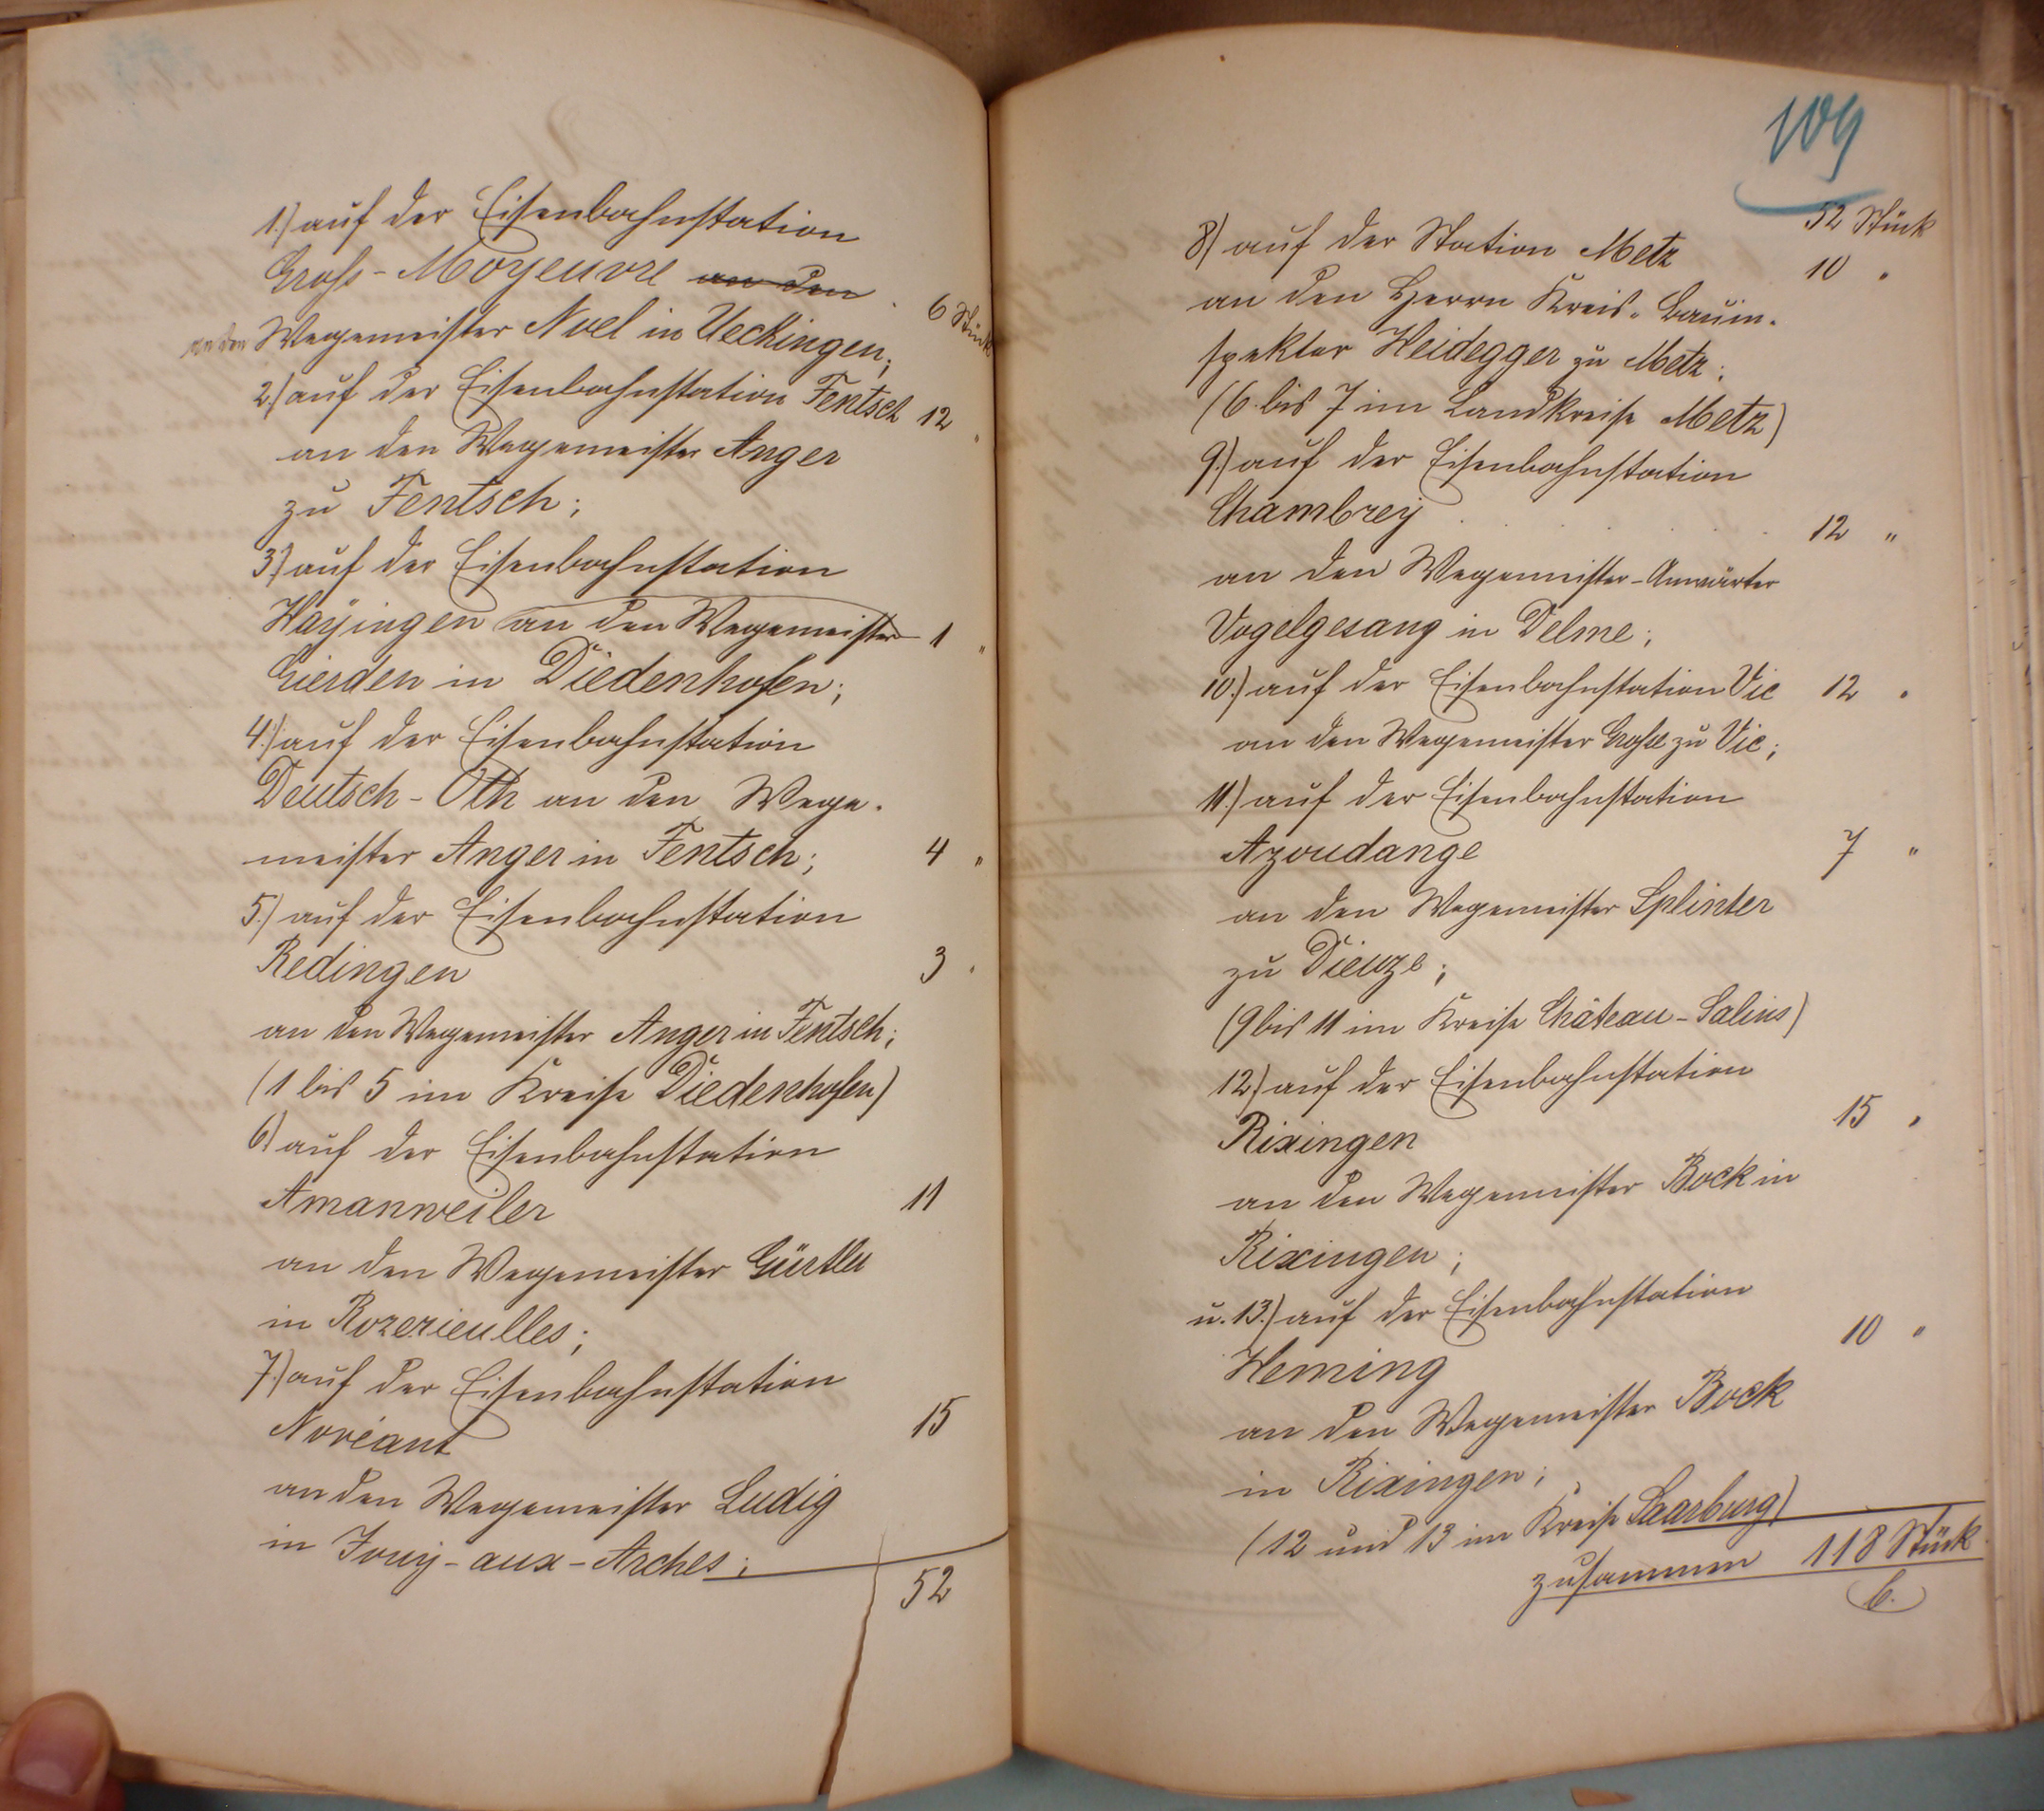 1.) auf der Eisenbahnstation
Groß-Moyeuvre an den 6 Stück
an den Wegemeister Noel in Ueckingen;
2.) auf der Eisenbahnstation Fentsch 12 "
an den Wegemeister Anger
zu Fentsch;
3.) auf der Eisenbahnstation
Hayingen an den Wegemeister 1 "
Gierden in Diedenhofen;
4.) auf der Eisenbahnstation
Deutsch-Oth an den Wege-
meister Anger in Fentsch; 4 "
5.) auf der Eisenbahnstation
Redingen 3 "
an den Wegemeister Anger in Fentsch;
(1 bis 5 im Kreise Diedenhofen)
6) auf der Eisenbahnstation
Amanweiler 11
an den Wegemeister Gürtler
in Rozerieulles;
7.) auf der Eisenbahnstation
Novéant 15
an den Wegemeister Ludig
in Jouy-aux-Arches;
52
109
52 Stück
8) auf der Station Metz 10 "
an den Herrn Kreis-Bauin-
spektor Heidegger zu Metz;
(6 bis 7 im Landkreise Metz)
9.) auf der Eisenbahnstation
Chambrey 12 "
an den Wegemeister-Anwärter
Vogelgesang in Delme;
10.) auf der Eisenbahnstation Vic 12 "
an den Wegemeister Große zu Vic;
11.) auf der Eisenbahnstation
Azoudange 7 "
an den Wegemeister Splinter
zu Dieuze;
(9 bis 11 im Kreise Château-Salins)
12.) auf der Eisenbahnstation
Rixingen 15 "
an den Wegemeister Bock in
Rixingen;
u. 13.) auf der Eisenbahnstation
Heming 10 "
an den Wegemeister Bock
in Rixingen;
(12 und 13 im Kreise Saarburg)
zusammen 118 Stück